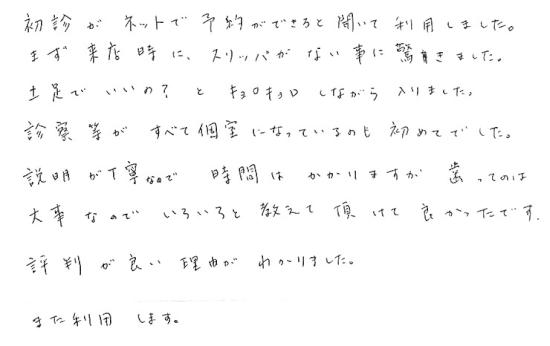 初診が ネットで予約ができると聞いて利用しました。
まず来店時に、スリッパがない事に驚きました。
土足でいいの?とキョロキョロしながら入りました。
診察等がすべて個室になっているのも初めてでした。
説明が丁寧なので 時間はかかりますが 歯ってのは
大事なのでいろいろと教えて頂けて良かったです.
評判が良い理由がわかりました。
また利用します。